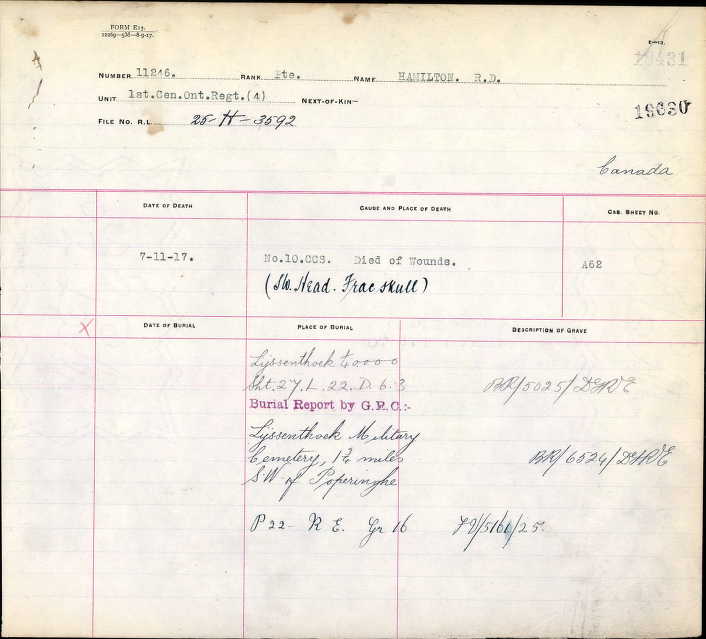 FORM E17.
12269—578—8-9-17.
E—13.
19431
NUMBER 11246. RANK Pte. NAME HAMILTON. R.D.
UNIT 1st.Cen.Ont.Regt.(4) NEXT-OF-KIN—
19630
FILE NO. R.L. 25-H-3592
Canada
DATE OF DEATH CAUSE AND PLACE OF DEATH CAS. SHEET NO.
7-11-17. No.10.CCS. Died of Wounds. A62
(SW. Head. Frac skull)
X DATE OF BURIAL PLACE OF BURIAL DESCRIPTION OF GRAVE
Lijssenthoek 1/40000
Sht. 27. L. 22. D. 6.3 BR/5025/DGR&E
Burial Report by G.R.C.:-
Lijssenthoek Military
Cemetery, 1¾ miles BR/6524/DGR&E
S.W. of Poperinghe
P 22- R E. Gr 16